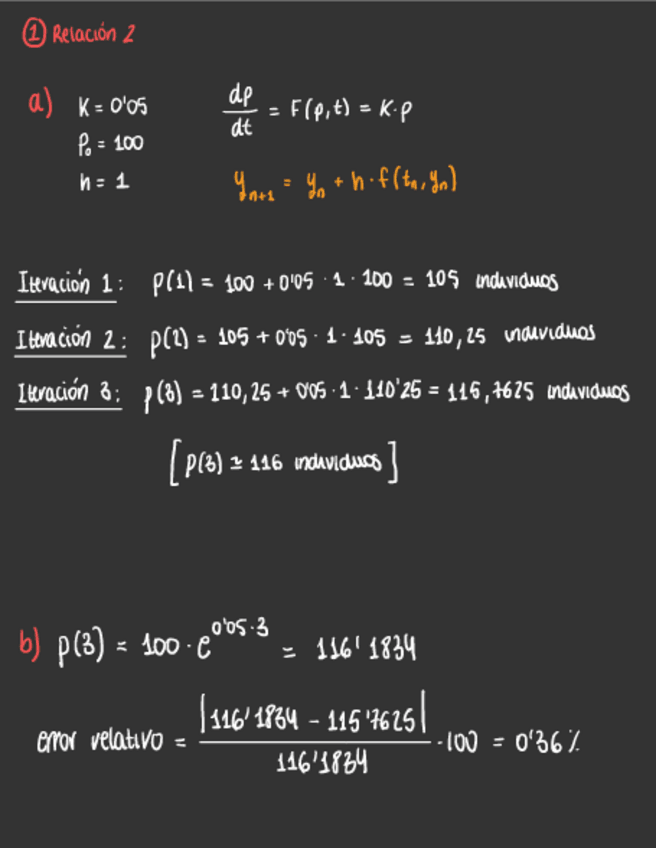 ① Relación 2
a) K = 0'05
P₀ = 100
h = 1
dp/dt = F(p,t) = K·p
yₙ₊₁ = yₙ + h·f(tₙ,yₙ)
Iteración 1: p(1) = 100 + 0'05 · 1 · 100 = 105 individuos
Iteración 2: p(2) = 105 + 0'05 · 1 · 105 = 110,25 individuos
Iteración 3: p(3) = 110,25 + 0'05 · 1 · 110'25 = 115,7625 individuos
[p(3) ≃ 116 individuos]
b) p(3) = 100 · e^(0'05·3) = 116'1834
error relativo = |116'1834 - 115'7625| / 116'1834 · 100 = 0'36 %